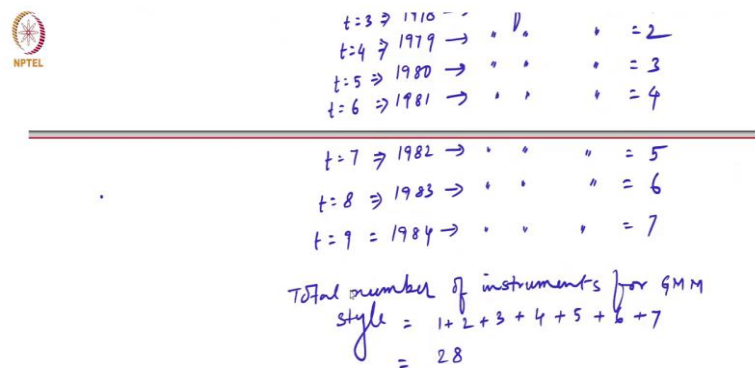 NPTEL
t=3 ⇒ 1978 →
t=4 ⇒ 1979 → " " " = 2
t=5 ⇒ 1980 → " " " = 3
t=6 ⇒ 1981 → " " " = 4
t=7 ⇒ 1982 → " " " = 5
t=8 ⇒ 1983 → " " " = 6
t=9 = 1984 → " " " = 7
Total number of instruments for GMM
style = 1+2+3+4+5+6+7
= 28